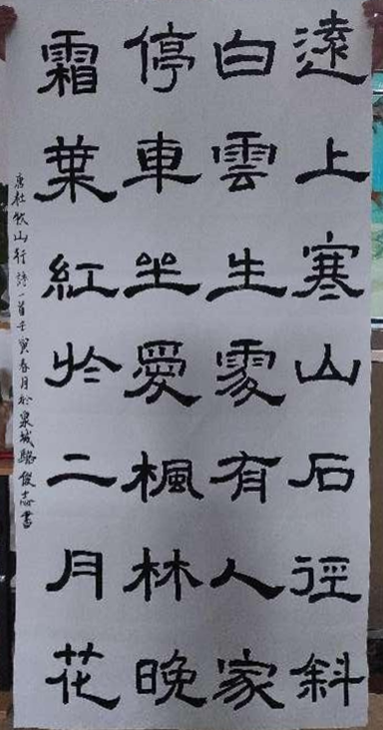 遠上寒山石徑斜
白雲生處有人家
停車坐愛楓林晚
霜葉紅於二月花
唐杜牧山行詩一首壬寅春月於泉城駱俊志書